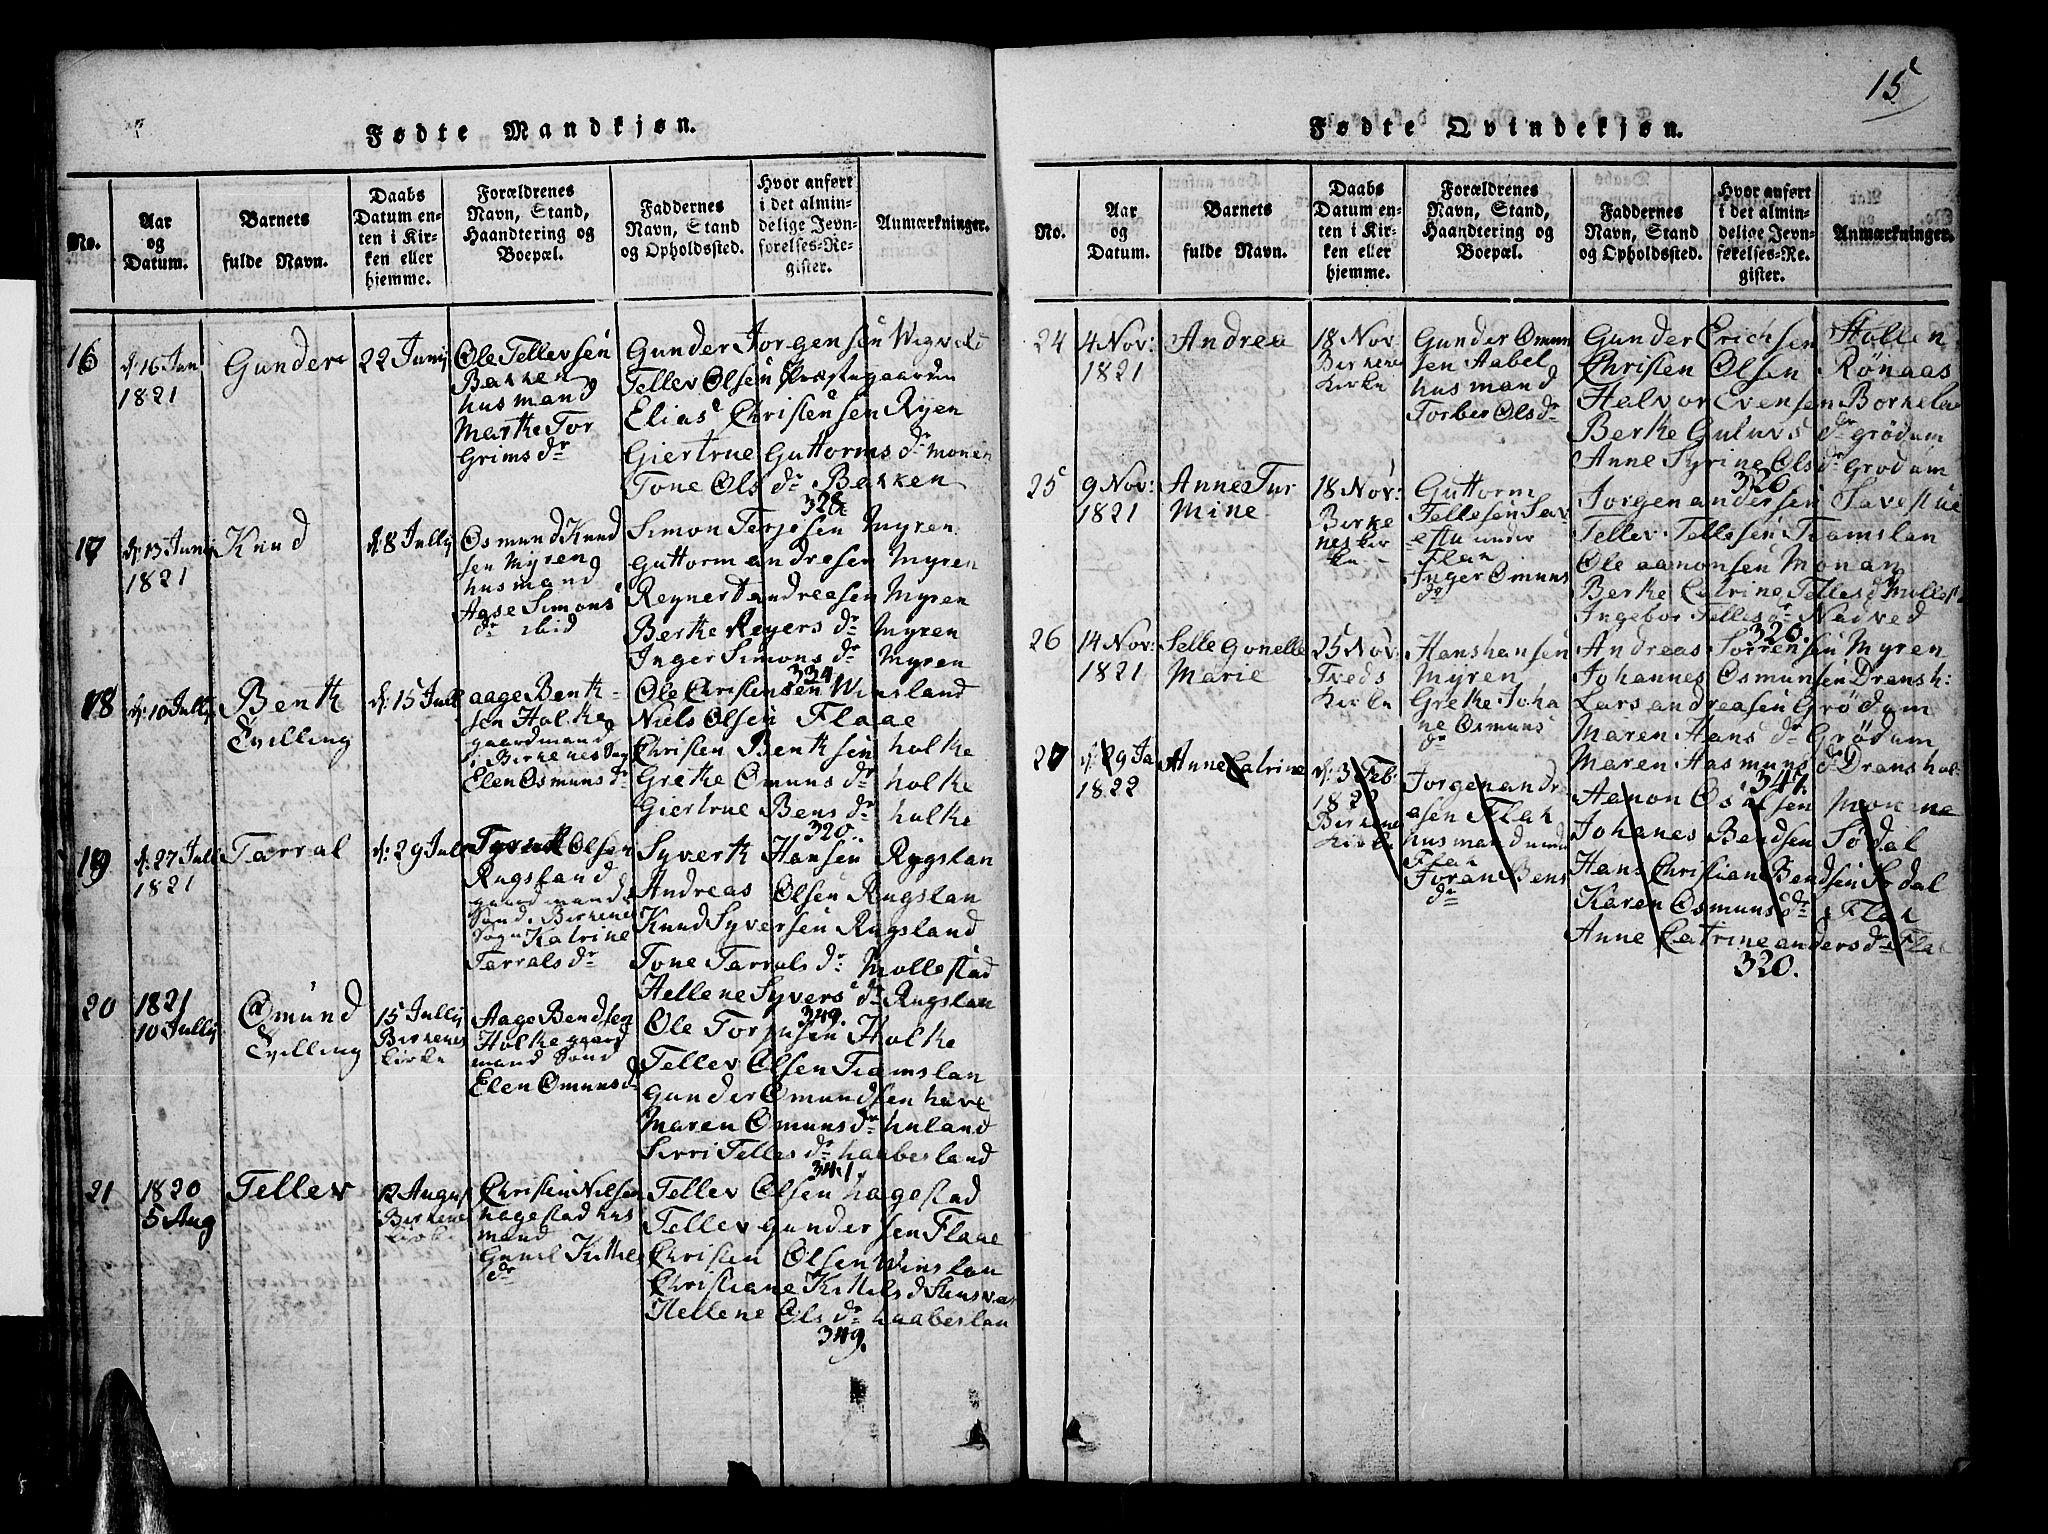 15
Fødte Mandkjøn.
No.
Aar
og
Datum.
Barnets
fulde Navn.
Daabs
Datum en-
ten i Kir-
ken eller
hjemme.
Forældrenes
Navn, Stand,
Haandtering og
Boepæl.
Faddernes
Navn, Stand
og Opholdssted.
Hvor anført
i det almin-
delige Jevn-
førelses-Re-
gister.
Anmærkninger.
16
d: 16 Jan
1821
Gunder
22 Junij
Ole Tellevsen
Bakken
husmand
Marthe Tor
Grims dr
Gunder Jorgensen
Tellev Olsen Præstegaarden
Elias Christensen Ryen
Giertrue Guttorms dr monen
Tone Ols dr Bakken
328
17
d: 13 Junij
1821
Knud
d: 8 Jullij
Osmund Knud
sen Myren
husmand
Aase Simons
dr ibid
Simon Terjesen Myren
Guttorm andresen Myren
Reynert andreasen Myren
Berthe Reyers dr Myren
Inger Simons dr Myren
334
18
d: 10 Jullij
Benth
Tvilling
d: 15 Jull
aage Benth-
sen Holke
gaardmand
i Birkenes Sogn
Elen Osmuns dr
Ole Christensen Winsland
Niels Olsen Flaae
Christen Benthsen holke
Grethe Omuns dr holke
Giertrue Bens dr holke
320.
19
d: 27 Jull
1821
Tarral
d: 29 Jull
Olsen
Rugsland
gaardmand
Sønd. Birkenes
Sogn Katrine
Tarrals dr
Syverth Hansen Rugslan
Andreas Olsen Rugslan
Knud Syversen Rugsland
Tone Tarrals dr: Mollestad
Hellene Syvers dr Rugslan
349.
20
1821
10 Jullij
Omund
Tvilling
15 Jullij
Birkenes
kirke
Aage Bendsen
Holke gaard
mand Sønd
Elen Omuns d
Ole Torjusen Holke
Tellev Olsen Tramslan
Gunder Omundsen have
Maren Omuns dr huland
Sirri Telles dr haabesland
341.
21
1820
5 Aug
Tellev
12 August
Birkene
kirke
Christen Nilsen
hagestad hus
mand
Gunil Kithels
dr
Tellev Olsen hagestad
Tellev Gundersen Flaae
Christen Olsen Winslan
Christiane Kittels d
Hellene Ols dr haabeslan
349.
Fødte Qvindekjøn.
No.
Aar
og
Datum.
Barnets
fulde Navn.
Daabs
Datum en-
ten i Kir-
ken eller
hjemme.
Forældrenes
Navn, Stand,
Haandtering og
Boepæl.
Faddernes
Navn, Stand
og Opholdssted.
Hvor anført
i det almin-
delige Jevn-
førelses-Re-
gister.
Anmærkninger.
24
4 Nov:
1821
Andrea
18 Nov
Birkene
kirke
Gunder Omun
sen Aabel
husmand
Torber Ols dr
Gunder Erichsen Hollen
Christen Olsen Rønaas
Halvor Evensen Borkela
Berthe Guluvs dr grødum
Anne Syrine Ols dr Grodum
320
25
9 Nov:
1821
Anne Tur
Mine
18 Nov:
Birke
nes kir
ke
Guttorm
Tellesen Sav
estu under
Flaa
Inger Omuns
dr
Jorgen andersen Savestue
Tellev Tellesen Tramslan
Ole aamonsen Monan
Berthe Catrine Telles d Mollest
Ingebor Telles dr Nedved
320.
26
14 Nov:
1821
Selle gonelle
Marie
25 Nov:
Tveds
kirke
Hans hansen
Myren
Grethe Joha
ne Osmuns
dr
Andreas Sørrensen Myren
Johannes Osmunsen Dransh:
Lars andreasen Grødum
Maren Hans dr Grødum
Maren Aasmuns d Dranshol
347.
27
d: 29 Ja
1822
Anne Catrine
d: 3 Feb:
1822
Birkene
kirke
Jorgen andr
easen Flak
husmand und
Flak
Joran Bens
dr
Aanon Olsen Monene
Johanes Bendsen Sødal
Hans Christian Bendsen Sødal
Karen Osmuns dr Flak
Anne Catrine anders dr Flak
320.